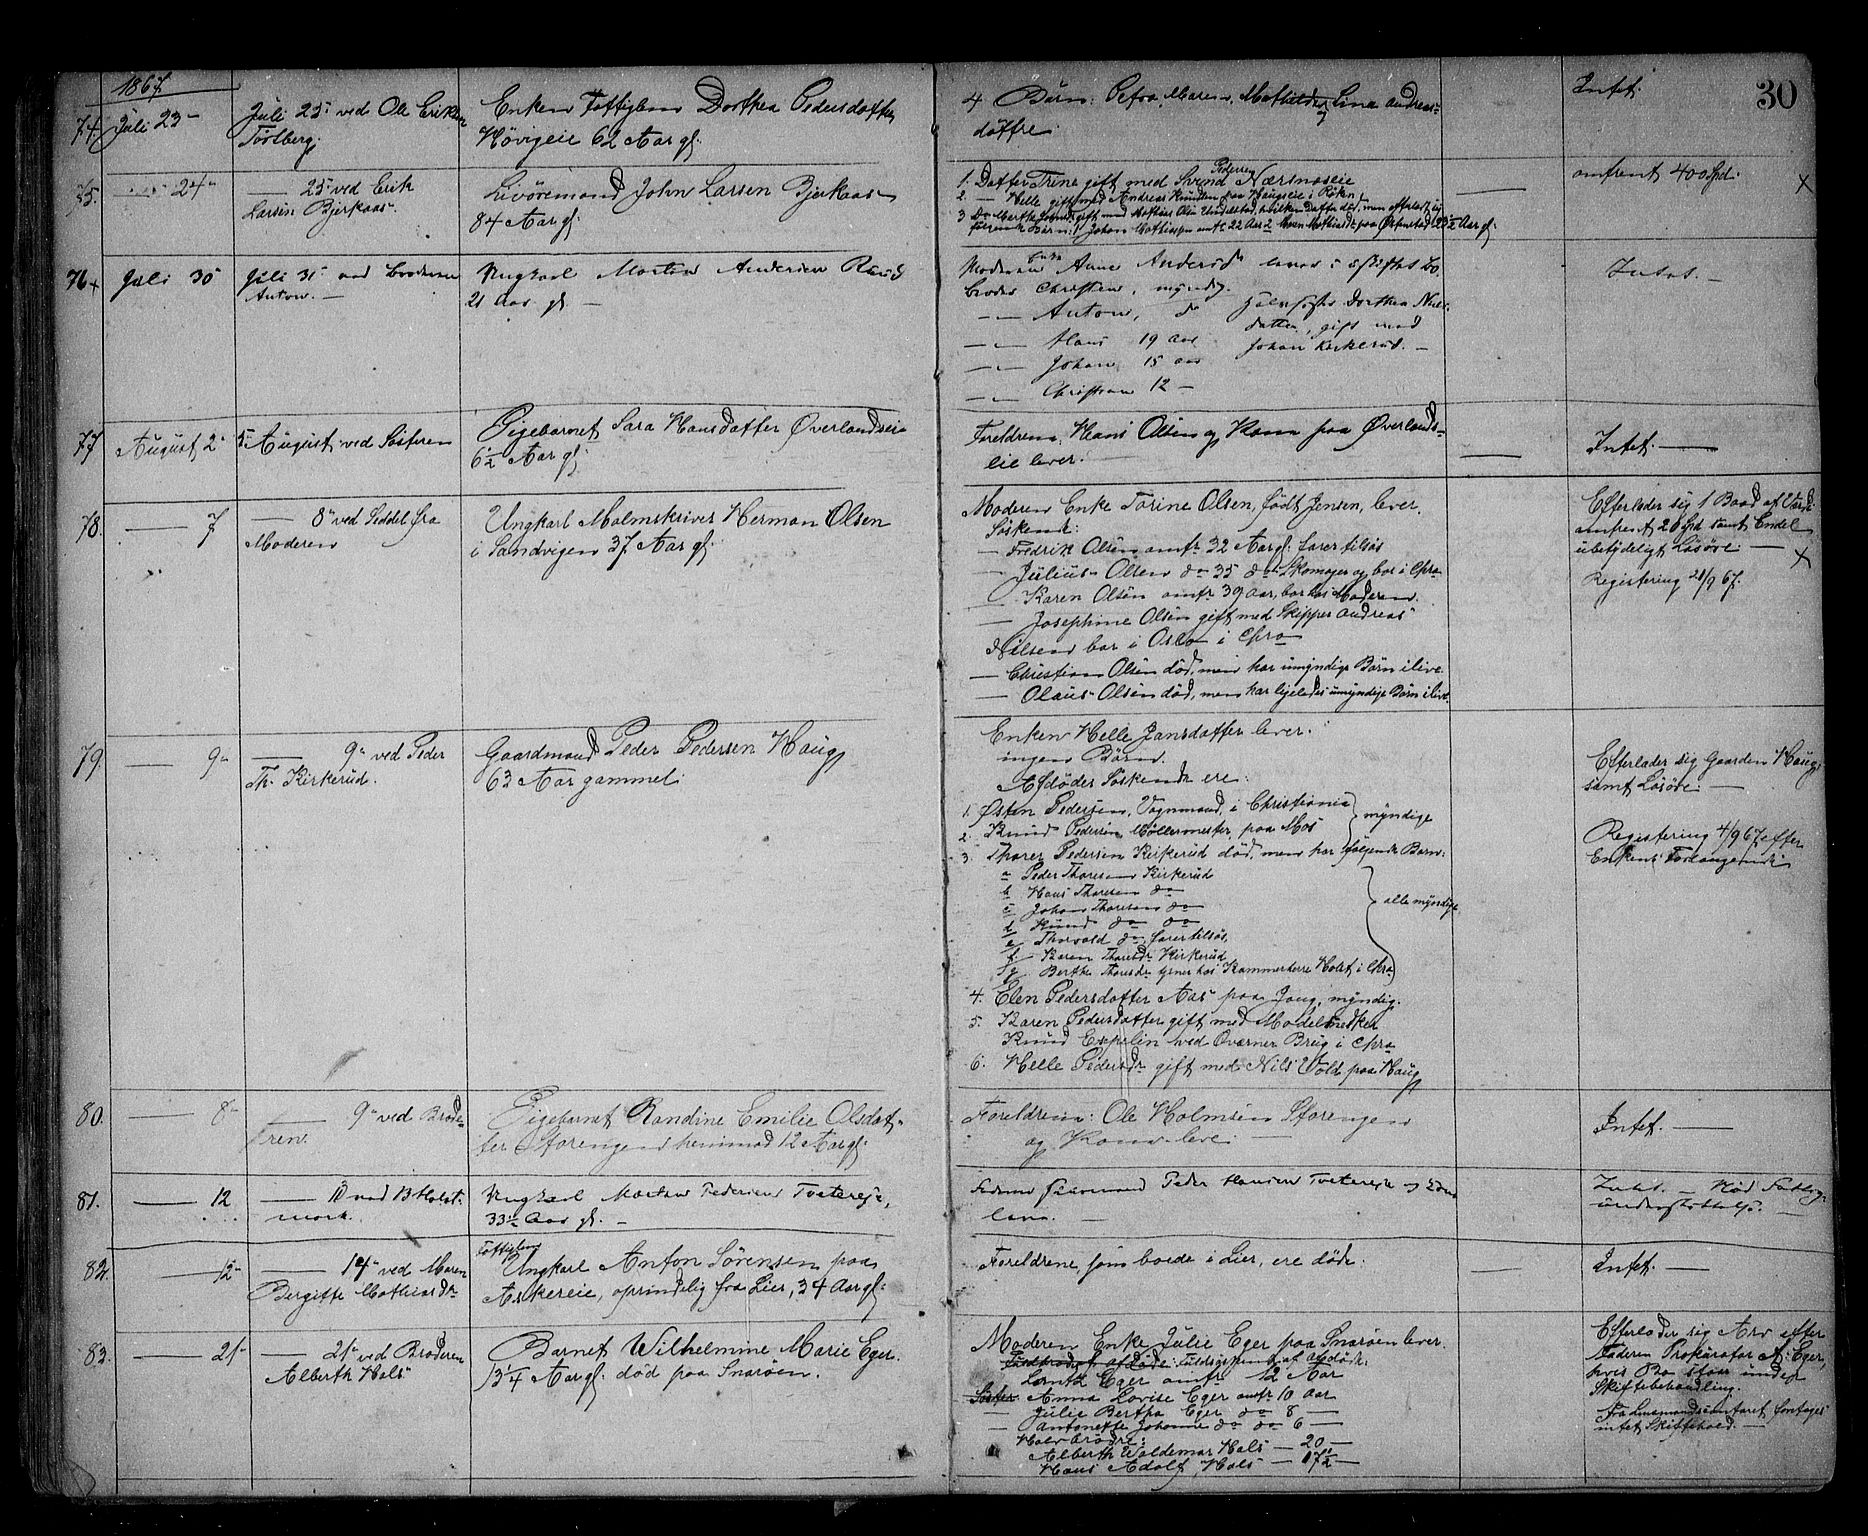 1867.
30
74. Juli 23 -
Juli 25 ved Ole Eriksen
Torlberg.
Enken Fattiglem Dorthea Pedersdatter
Høvigeie 62 Aar gl.
4 Børn: Petra, Maren, Mathilde og Lina Andreas-
døttre.
Intet.
75. 24
— 25 ved Erik
Larsen Bjerkaas.
Livøremand John Larsen Bjerkaas
84 Aar gl.
1. Datter Trine gift med Svend Pedersen Næsnæseie
2. — Helle gift med Andreas Knudsen paa Haugseie i Røken
3. Do Marthe Johnsd. gift med Mathias Olsen, hvilken Datter død, men efterladt sig
følgende Børn: 1 Johan Mathissen omtr. 22 Aar 2
omtrent 400 Spd. x
76 + Juli 30
Juli 31 ved Broderen
Anton. —
Ungkarl Morten Andersen Rud
21 Aar gl. —
Moderen Enke Anne Andersd. lever i uskiftet Bo
Broder Christian, myndig.
— Anton, do
— Hans 19 Aar
— Johan 15 aar
— Christian 12 —
Halvsøster Dorthea Niels-
datter, gift med
Johan Kirkerud. —
Intet. —
77 August 2
5 August ved Søsteren
Pigebarnet Sara Hansdatter Øverlandseie
6 1/2 Aar gl.
Foreldrene, Hans Olsen og Kone paa Øverlands-
eie lever.
Intet. —
78. — 7
— 8 ved Seddel fra
Moderen
Ungkarl Malmskriver Herman Olsen
i Sandvigen 37 Aar gl.
Moderen Enke Torine Olsen, født Jensen, lever.
Søskende:
— Fredrik Olsen omtr. 32 Aar gl. farer tilsøs
— Julius Olsen do 35 do Skomager og bor i Chra
— Karen Olsen omtr 39 Aar, bor hos Moderen.
— Josephine Olsen gift med Skipper Andreas
Nilsen bor i Oslo i Chra
— Christian Olsen død, men har umyndige Børn ilive
— Olaus Olsen død, men har ligeledes umyndige Børn ilive.
Efterlader sig 1 Baad af Værdi
omtrent 20 Spd samt Endel
ubetydeligt Løsøre — x
Registering 21/9 67.
79. — 9
— 9 ved Peder
Th. Kirkerud.
Gaardmand Peder Pedersen Haug
63 Aar gammel.
Enken Helle Jansdatter lever.
ingen Børn.
Afdødes Søskende ere:
1. Østen Pedersen, Vognmand, i Christiania
2. Knud Pedersen Møllermester paa Mos
myndige
3. Thorer Pedersen Kirkerud død, men har følgende Børn:
a Peder Thoresen Kirkerud
b Hans Thoresen do
c Johan Thoresen do
d Knud do do
e Thorvald do farer tilsøs,
f Karen Thoresdr Kirkerud
g Berthe Thoresdr tjener hos Kammerherre Holst i Chra
alle myndige
4. Elen Pedersdatter Aas paa Jong, myndig.
5. Karen Pedersdatter gift med Modelsnedker
Knud Espelin ved Qværner Brug i Chra
6. Helle Pedersdr gift med Nils Vold paa Haug
Efterlader sig Gaarden Haug
samt Løsøre. —
Registering 4/9 67 efter
Enkens Forlangende
80. — 8
— 9 ved Brode-
ren.
Pigebarnet Randine Emilie Olsdat-
ter Storengen henimod 12 Aar gl.
Foreldrene: Ole Holmsen Storengen
og Kone leve. —
Intet. —
81. — 12
— 13 ved B Holst-
mark.
Ungkarl Morten Pedersen Tvetereje,
33 1/2 Aar gl. —
Peder Hansen Tvetereje og Kone
leve. —
Intet. — Nød Fattig-
understøttelse. —
82. — 12
— 14 ved Maren
Bergitte Mathiasdr
Fattiglem
Ungkarl Anton Sørensen paa
Askereie, oprindelig fra Lier, 34 Aar gl.
Foreldrene, som boede i Lier, ere døde.
Intet. —
83. — 21
— 21 ved Broderen
Alberth Hals
Barnet Wilhelmine Marie Eger.
13/4 Aar gl. død paa Snarøen.
Moderen Enke Julie Eger paa Snarøen lever.
Fuldsøskende af afdøde:
Lorntz Eger omtr. 12 Aar
Søster Anna Lovise Eger omtr 10 Aar
— Julie Bertha Eger do 8 —
— Antonette Johanne do do 6 —
Halvbrødre:
Alberth Waldemar Hals — 20 —
Hans Adolf Hals — 17 1/2 —
Efterlader sig Arv efter
Faderen Prokurator A. Eger,
hvis Bo staar under
Skiftebehandling.
Fra Lensmandscontoret foretages
intet Skiftehold. —